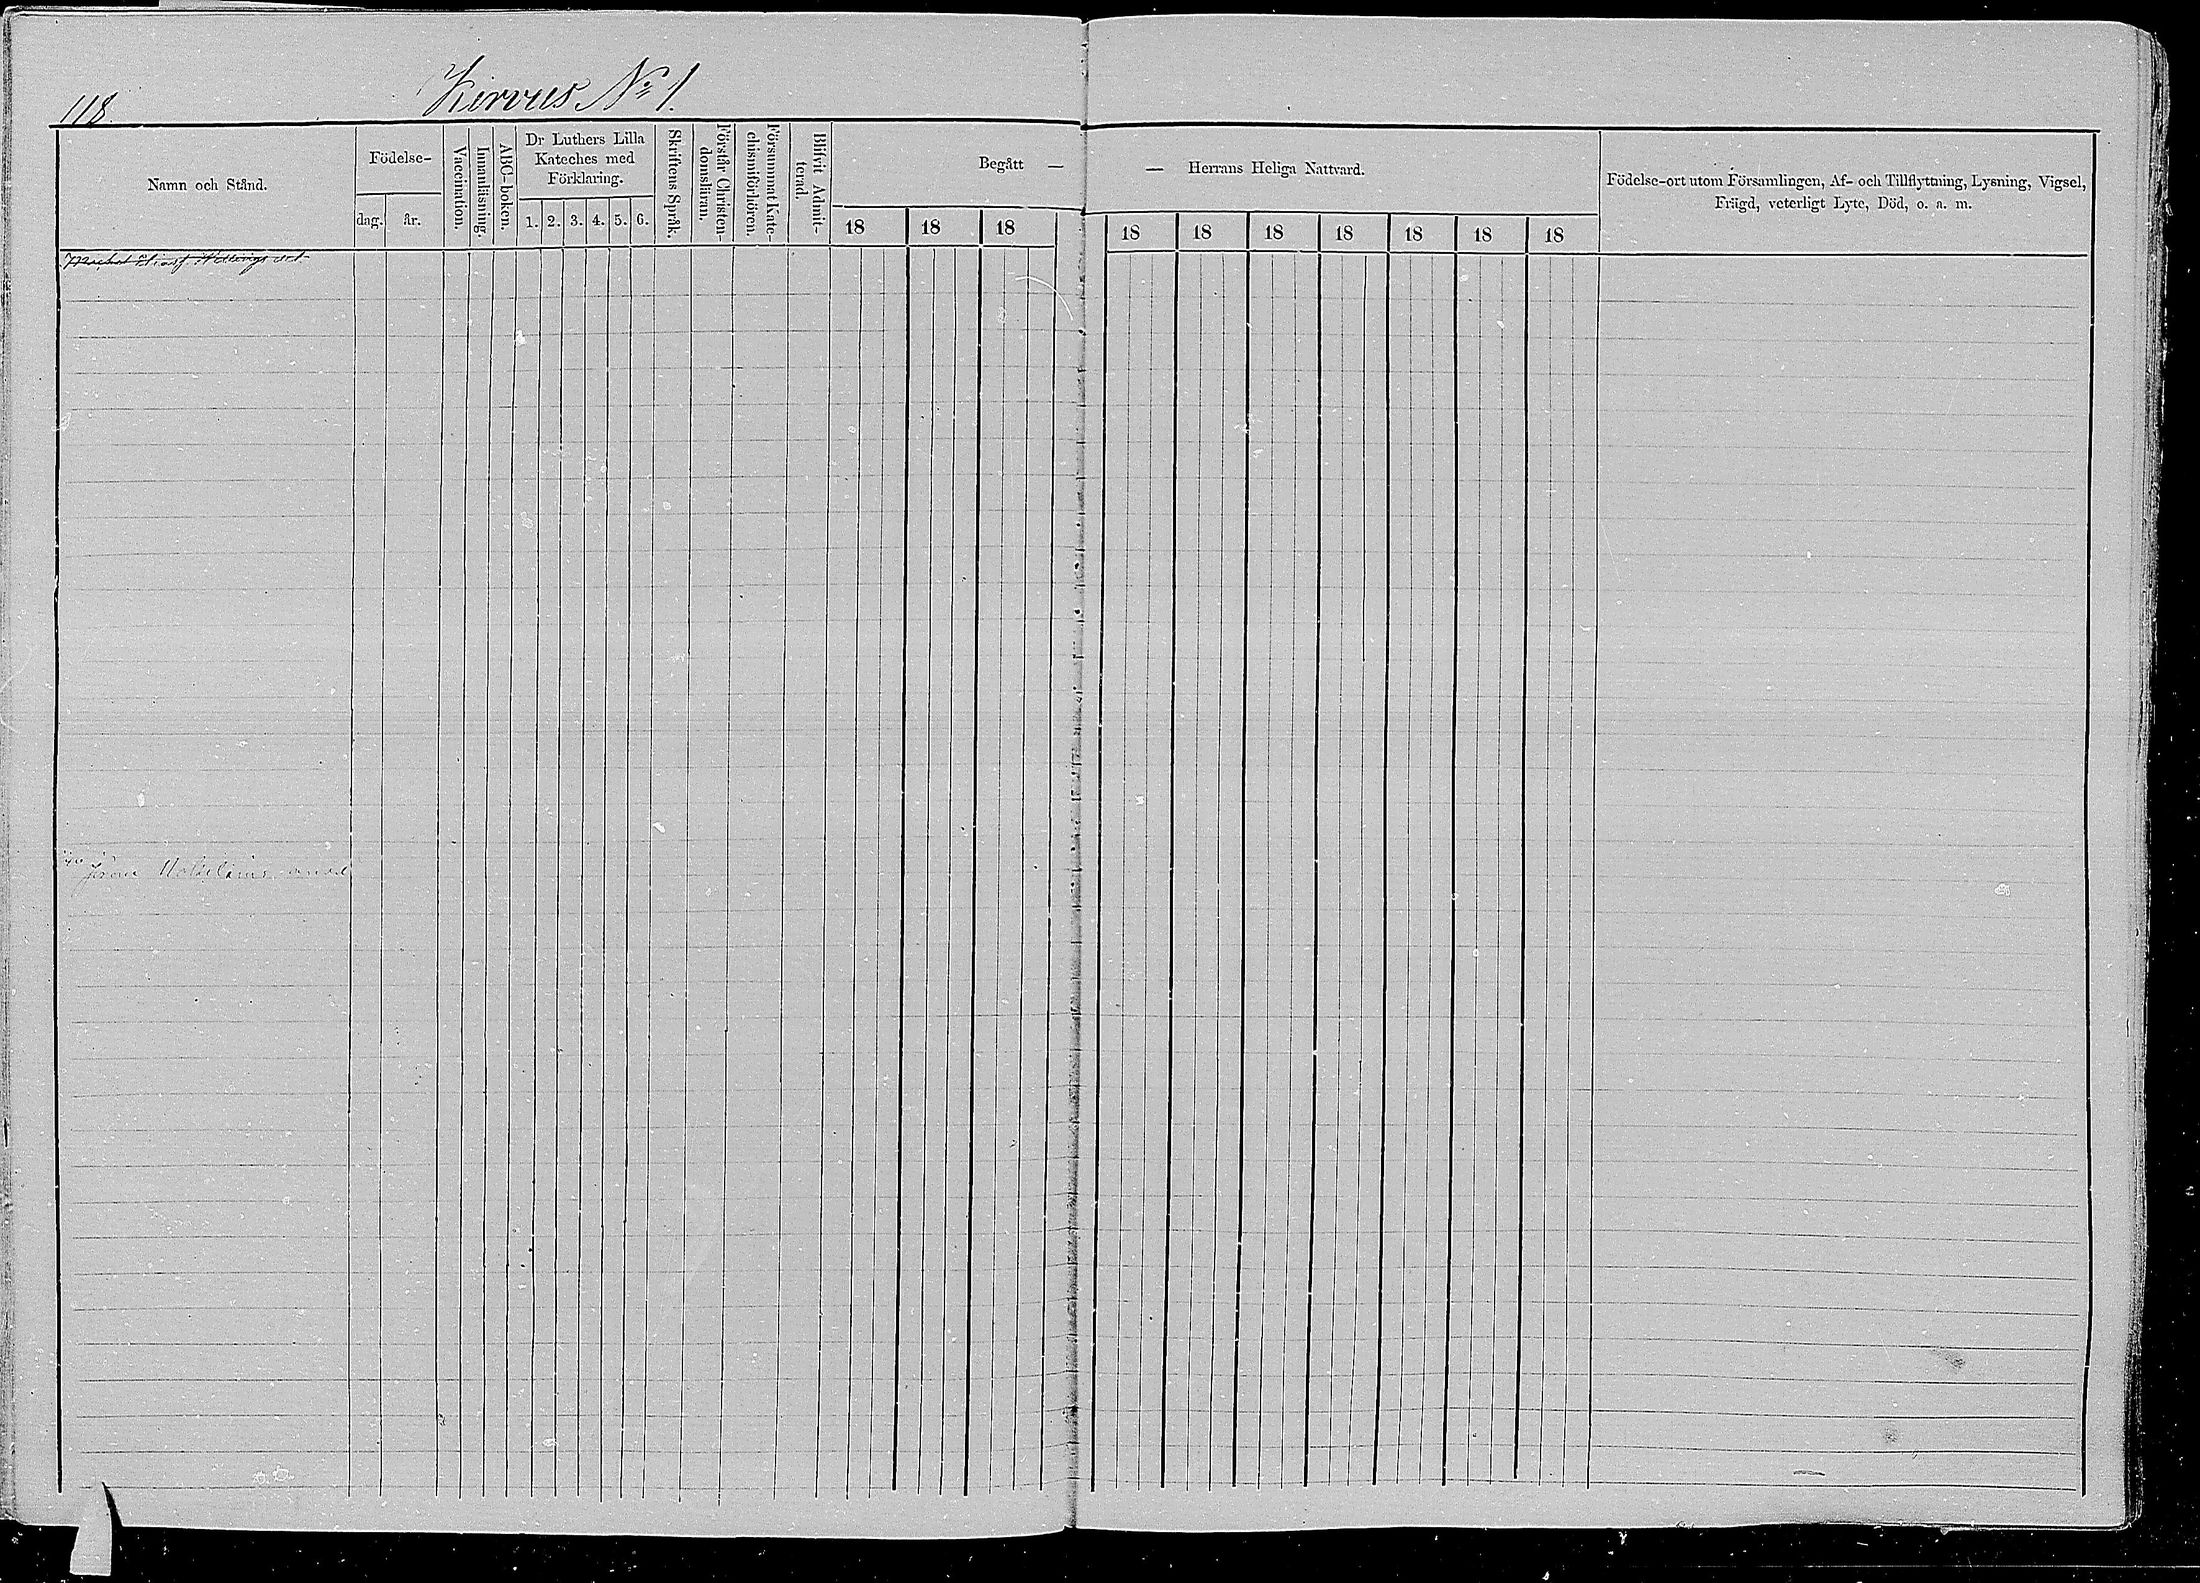 118.
Kirvus N:o 1.
Namn och Stånd.
Födelse-
dag.
år.
Vaccination.
Innanläsning.
ABC-boken.
Dr Luthers Lilla
Kateches med
Förklaring.
1. 2. 3. 4. 5. 6.
Skriftens Språk.
Förstår Christen-
domsläran.
Försummat Kate-
chismiförhören.
Blifvit Admit-
terad.
Begått —
18 18 18
— Herrans Heliga Nattvard.
18 18 18 18 18 18 18
Födelse-ort utom Församlingen, Af- och Tillflyttning, Lysning, Vigsel,
Frägd, veterligt Lyte, Död, o. a. m.